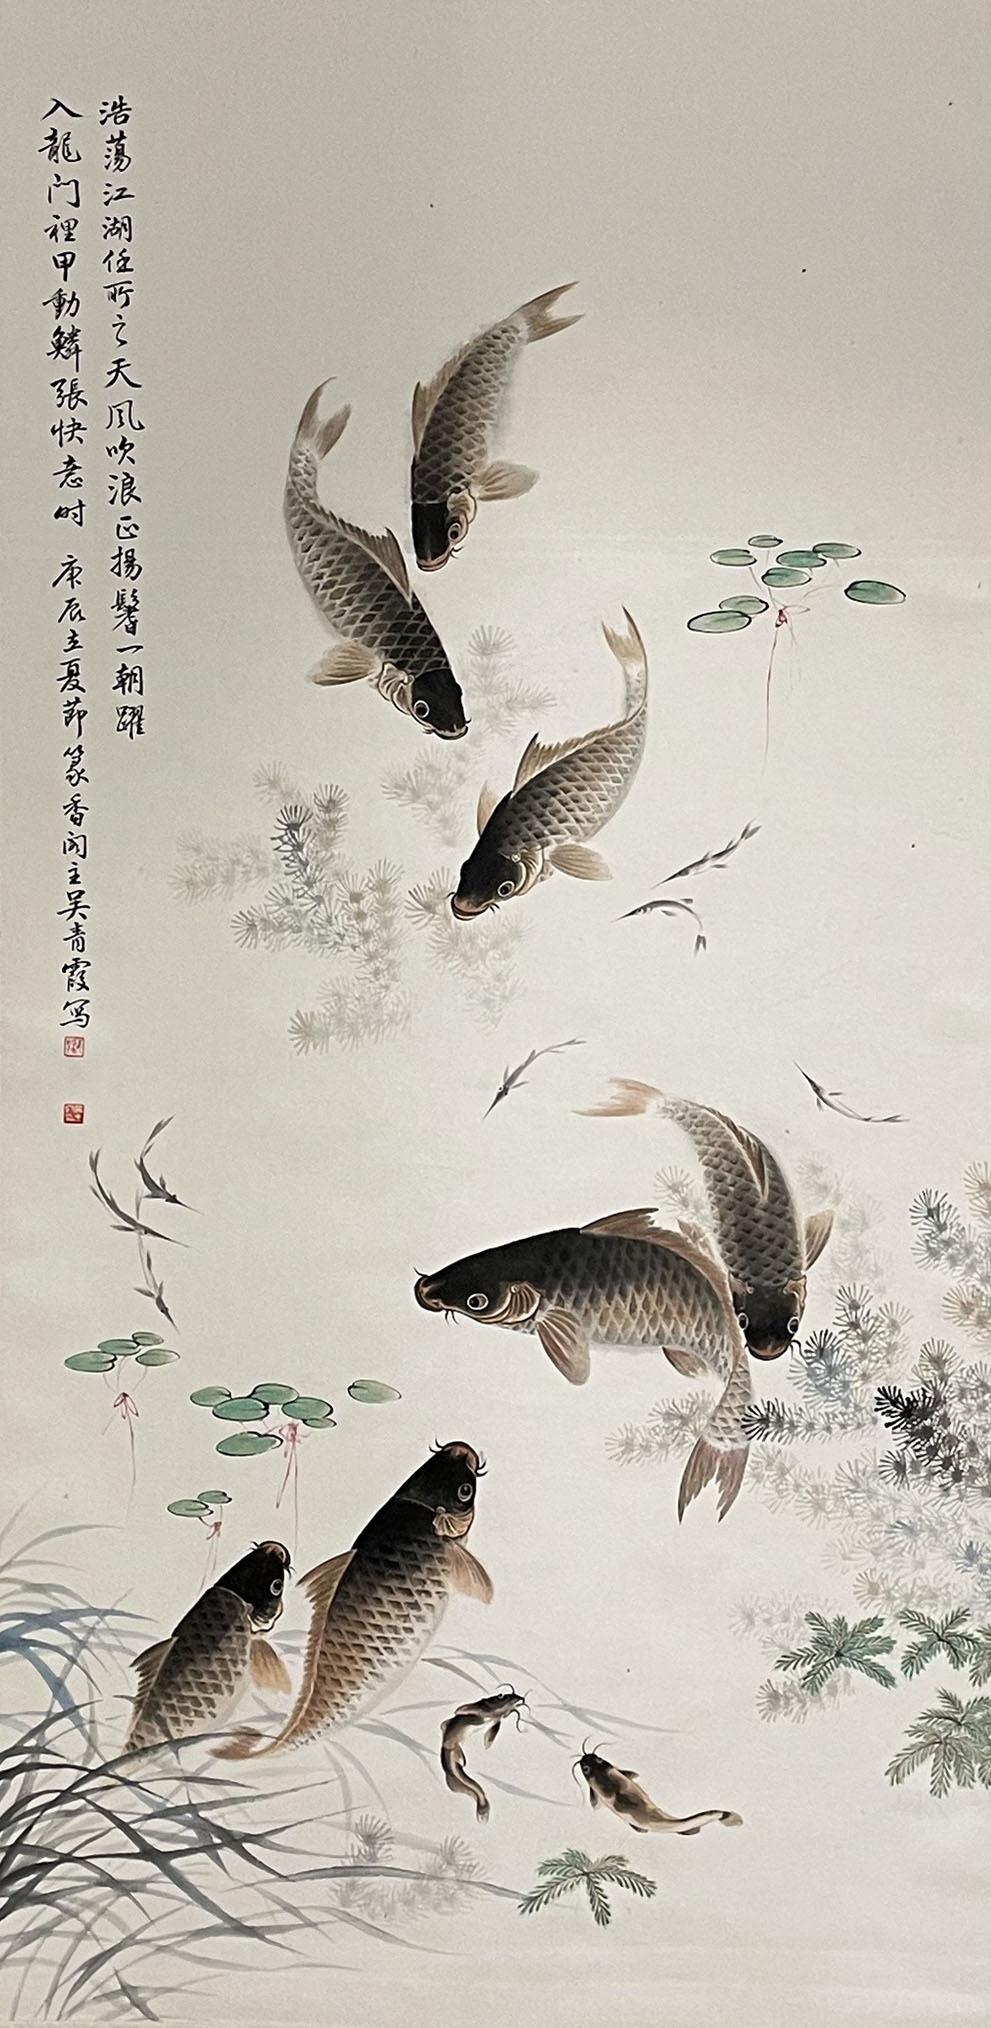 浩蕩江湖任所之天風吹浪正揚鬐一朝躍
入龍门裡甲動鱗張快意时 庚辰立夏節篆香阁主吴青霞写